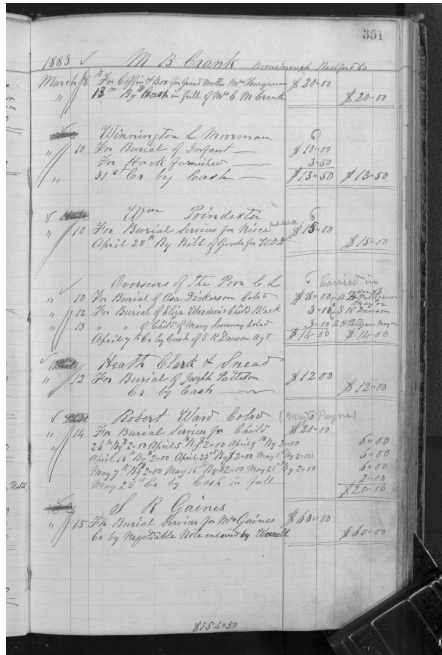 351
1883 M B Crank Bedford Co
March 8 For Coffin & Box for Grand Mother Mrs Ferguson $20-00
" 13th By Cash in full of Mr C M Crank $20-00
Winnington C Moorman
" 10 For Burial of Infant $10-00
For Hack furnished 3-50
" 31st Cr by Cash $13-50 $13-50
Wm Poindexter
" 10 For Burial Services for Niece $15-00
April 28th By Bill of Goods for $15-00
Overseers of the Poor C L Carried in
" 10 For Burial of Dickerson Cold $8-00
" 12 For Burial of Eliza Child Black 3-00
" 13 " " of Child of Mary Swaney Cold 3-00
April 7th Cr by Cash of S R Dawson Agt $14-00 $14-00
Heath Clark & Snead
" 12 For Burial of Joseph Patteson $12-00
Cr by Cash $12-00
Robert Ward Cold (Maj Payne)
" 14 For Burial Services for Child $20-00
24th By $2-00 April 5th By $2-00 April 9th By 2-00 6-00
April 14th By $2-00 April 23rd By $2-00 May 1st By 2-00 6-00
May 7th By $2-00 May 16th By $2-00 May 21st By 2-00 6-00
May 26th Cr by Cash in full 2-00
$20-00
S R Gaines
" 15 For Burial Services for Mrs Gaines $60-00
Cr by Negotiable Note endorsed by Worrell $60-00
$154-50